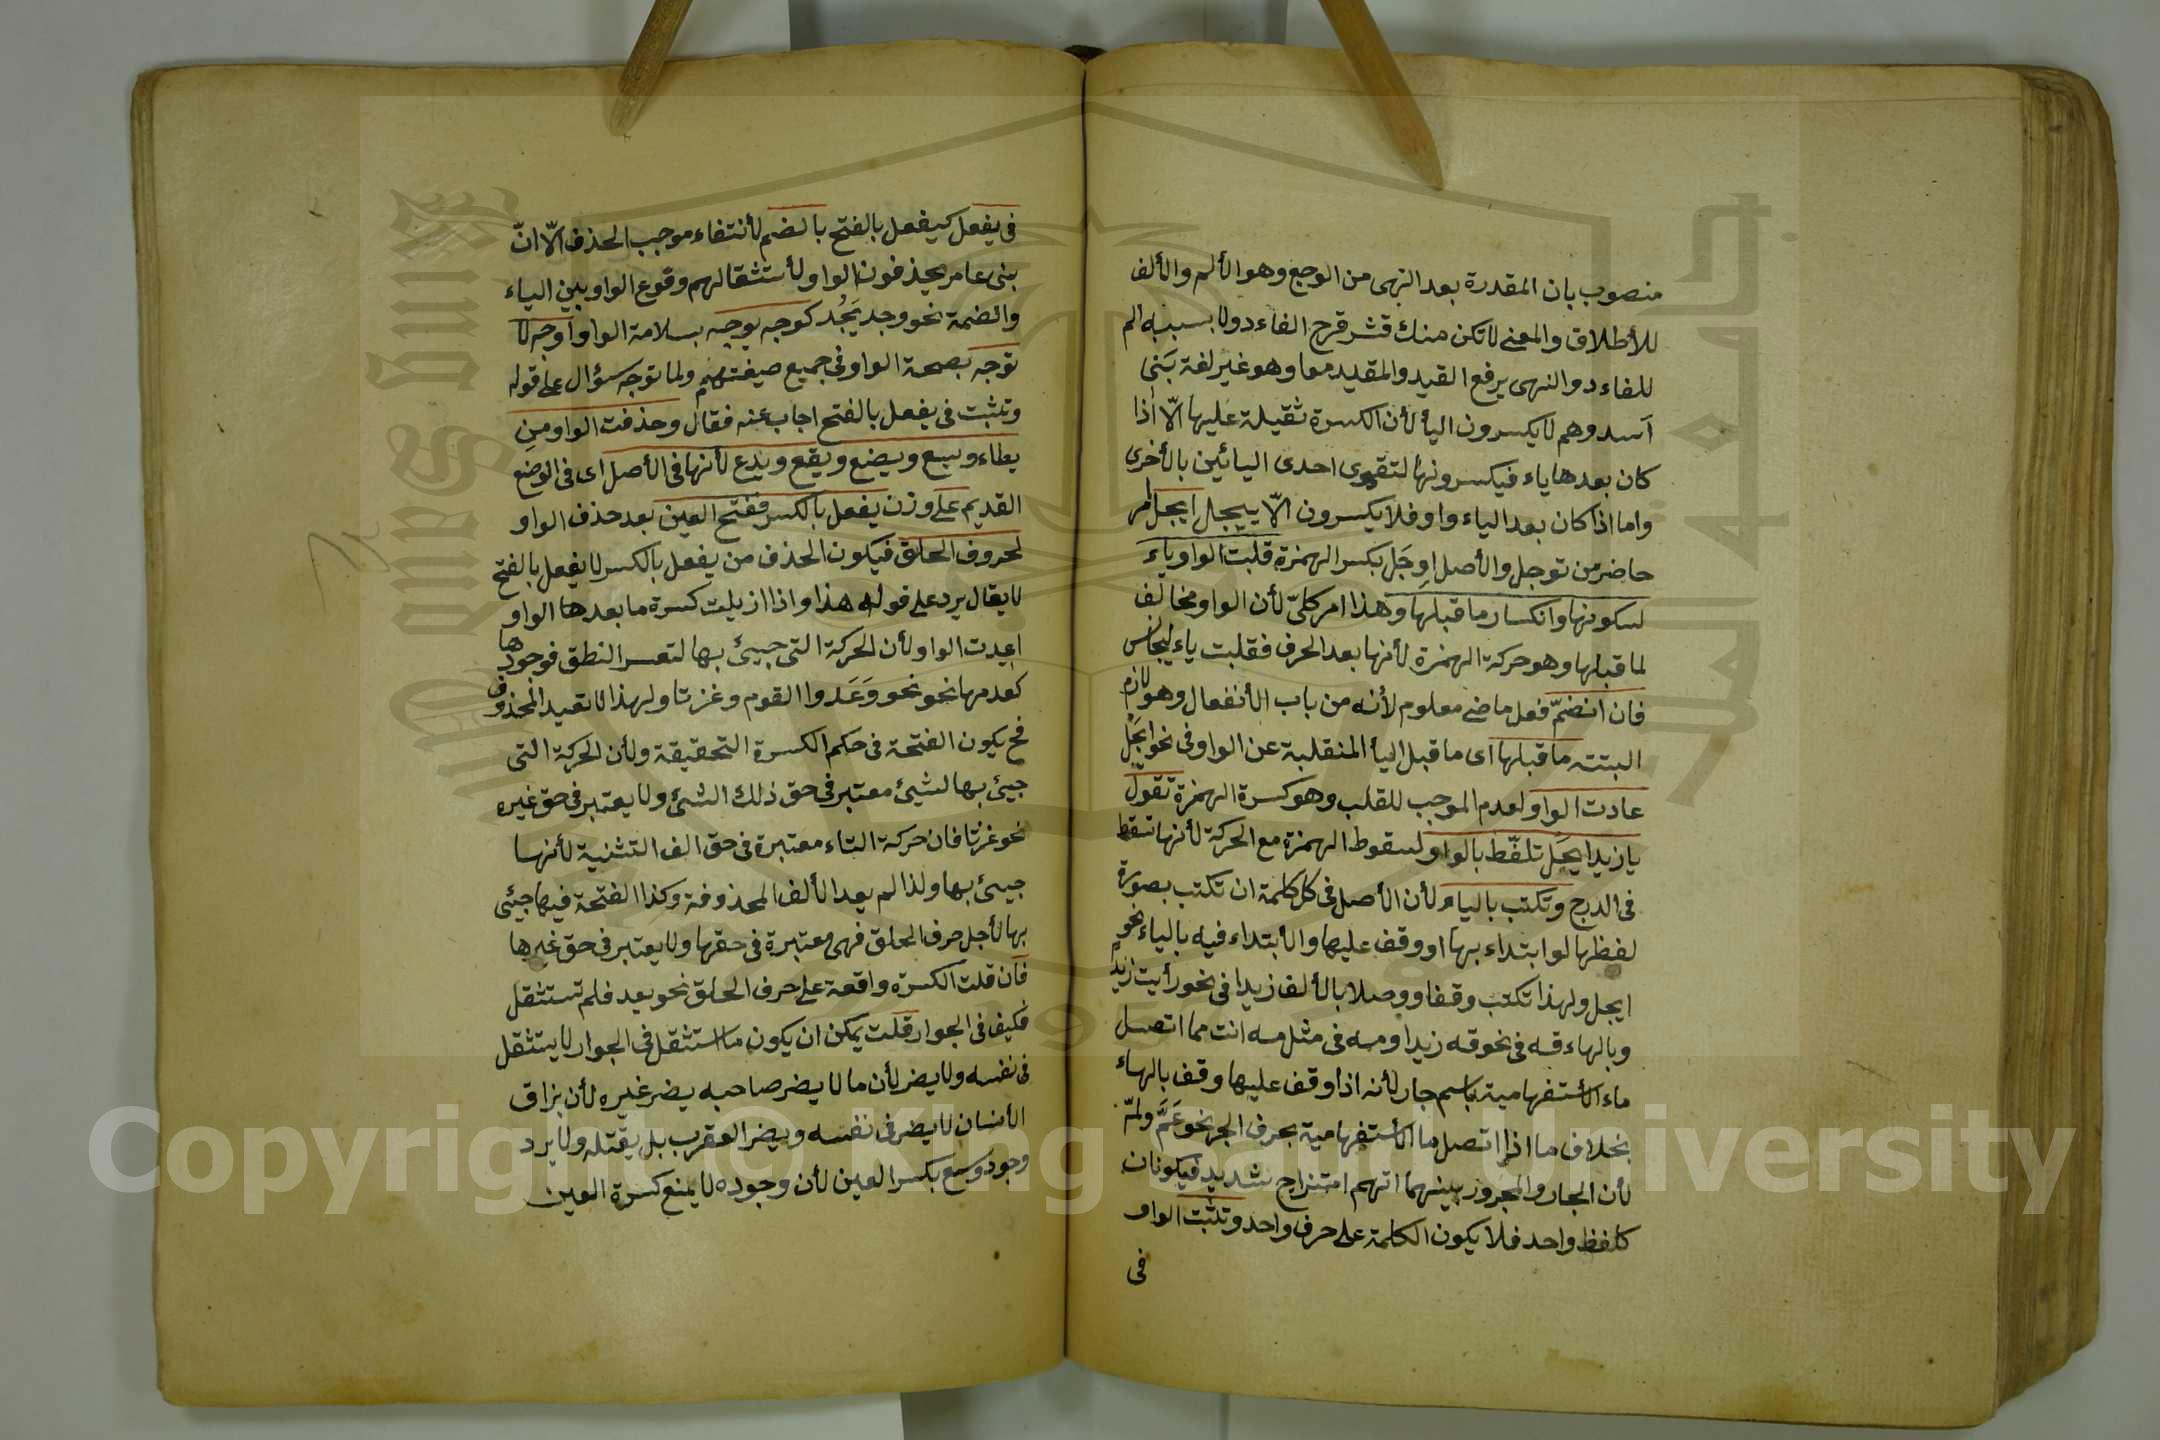 منصوب بان المقدرة بعد النهى من الوجع وهو الألم والألف
للأطلاق والمعنى لا تكن منك قشر قرح الفاء دولا بسببه الم
للفاء د والنهى يرفع القيد والمقيد معا وهو غير لغة بَنى
اَسد وهم لا يكسرون اليأ لأن الكسرة ثقيلة عليها الّا اذا
كان بعدها ياء فيكسرونها لتقوى احدى اليائين بالأخرى
واما اذا كان بعد الياء واو فلا يكسرون الّا ييجل ايجل امر
حاضر من توجل والأصل اِوجَل بكسر الهمزة قلبت الواو ياء
لسكونها وانكسار ما قبلها وهذا امر كلىّ لأن الواو مخالف
لما قبلها وهو حركة الهمزة لأنها بعد الحرف فقلبت ياء ليجانس
فان انضمّ فعل ماضى معلوم لأنه من باب الأنفعال وهو لازم
البتته ما قبلها اى ما قبل اليأ المنقلبة عن الواو فى نحو ايجَل
عادت الواو لعدم الموجب للقلب وهو كسرة الهمزة تقول
يا زيد ايجَل تلفّظ بالواو لسقوط الهمزة مع الحركة لأنها تسقط
فى الدرج وتكتب بالياء لأن الأصل فى كل كلمة ان تكتب بصورة
لفظها لو ابتداء بها او وقف عليها والأبتداء فيه بالياء نحو
ايجل ولهذا تكتب وقفا ووصلا بالألف زيدا فى نحو رأيت زيد
وبالهاء قه فى نحو قه زيدا ومه فى مثل مه انت مما اتصل
ماء الأستفهامية باسم جار لأنه اذا وقف عليها وقف بالهاء
بخلاف ما اذا اتصل ما الأستفهامية بحرف الجر نحو عَمَّ ولمّ
لأن الجار والمجرور بينهما اتهم امتزاج شديد فيكونان
كلفظ واحد فلا يكون الكلمة على حرف واحد وتثبت الواو
فى
فى يفعل كيفعل بالفتح بالضم لأنتفاء موجب الحذف الّا انّ
بنى عامر يحذفون الواو لأستثقالهم وقوع الواو بين الياء
والضمة نحو وجد يَجُد كوجه يوجه بسلامة الواو اوجه لا
توجه بصحة الواو فى جميع صيغتهم ولما توجه سؤال على قوله
وتثبت فى يفعل بالفتح اجاب عنه فقال وحذفت الواو من
يطاء ويسع ويضع ويقع ويدع لأنها فى الأصل اى فى الوضع
القديم على وزن يفعل بالكسر ففتح العين بعد حذف الواو
لحروف الحلق فيكون الحذف من يفعل بالكسر لا يفعل بالفتح
لا يقال يرد على قوله هذا واذا ازيلت كسرة ما بعدها الواو
اعيدت الواو لأن الحركة التى جيئ بها لتعسر النطق فوجودها
كعدمها نحو نحو وَعَدوا القوم وغزتا ولهذا لا تعيد المحذوف
فح يكون الفتحة فى حكم الكسرة التحقيقة ولأن الحركة التى
جيئ بها لشيئ معتبر فى حق ذلك الشئ ولا يعتبر فى حق غيره
نحو غزتا فان حركة التاء معتبرة فى حق الف التثنية لأنها
جيئ بها ولذا لم يعد الألف المحذوفة وكذا الفتحة فيها جيئى
بها لأجل حرف الحلق فهى معتبرة فى حقها ولا يعتبر فى حق غيرها
فان قلت الكسرة واقعة على حرف الحلق نحو يعد فلم تستثقل
فكيف فى الجوار قلت يمكن ان يكون ما استثقل فى الجوار لا يستثقل
فى نفسه ولا يضر لأن ما لا يضر صاحبه يضر غيره لأن بزاق
الأنسان لا يضر فى نفسه ويضر العقرب بل يقتله ولا يرد
وجود وسع بكسر العين لأن وجوده لا يمنع كسرة العين
Copyright © King Saud University